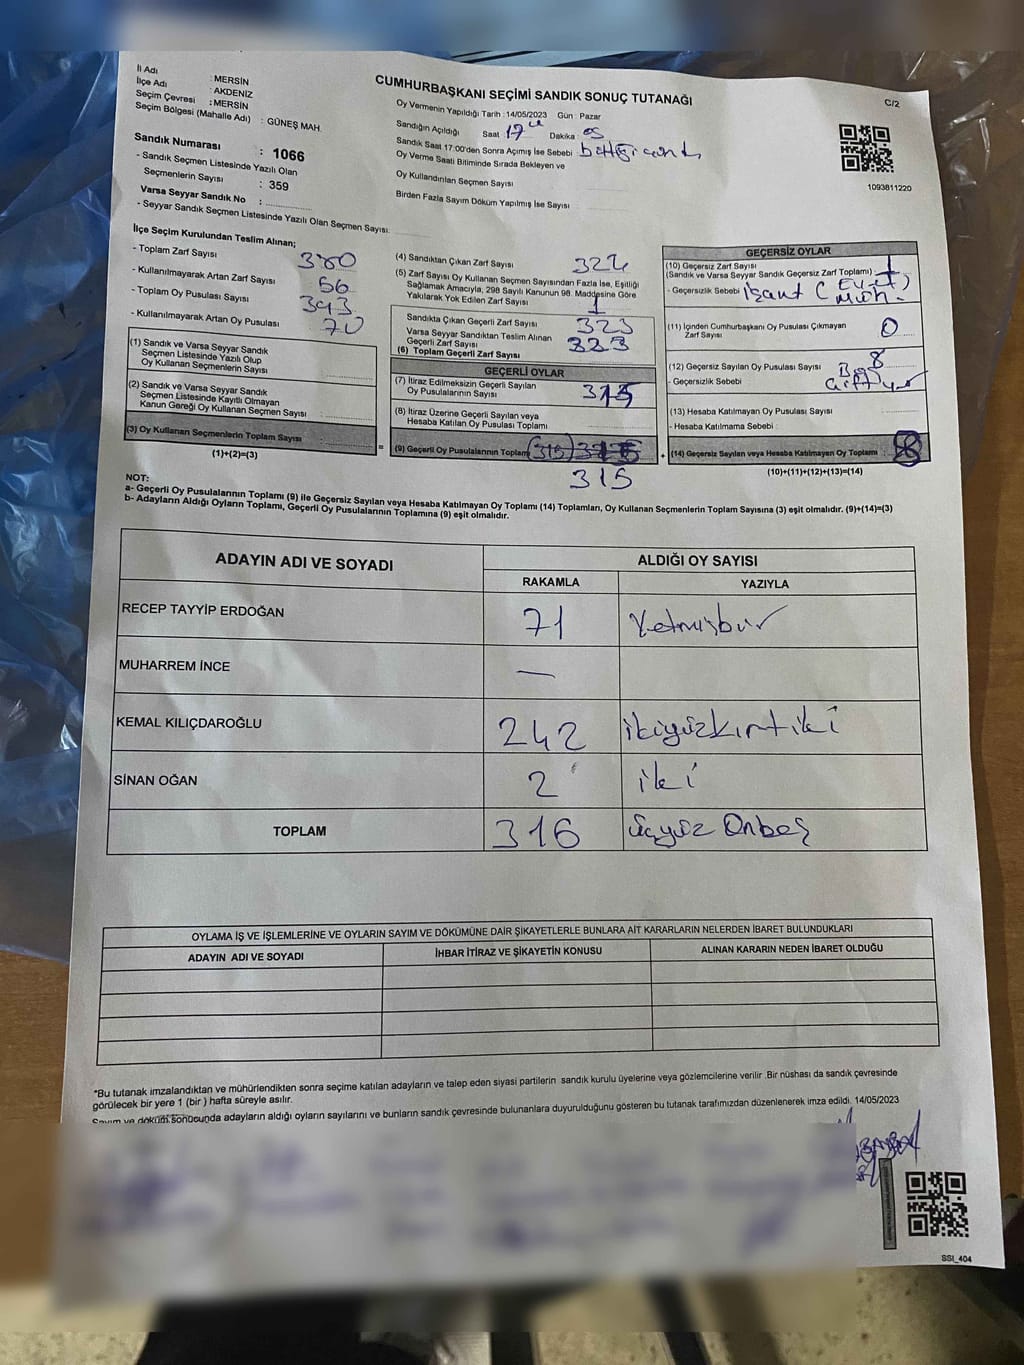 CUMHURBAŞKANI SEÇİMİ SANDIK SONUÇ TUTANAĞI
C/2
İl Adı : MERSİN
İlçe Adı : AKDENİZ
Seçim Çevresi : MERSİN
Seçim Bölgesi (Mahalle Adı) : GÜNEŞ MAH.
Sandık Numarası : 1066
- Sandık Seçmen Listesinde Yazılı Olan
Seçmenlerin Sayısı : 359
Varsa Seyyar Sandık No :
- Seyyar Sandık Seçmen Listesinde Yazılı Olan Seçmen Sayısı:
Oy Vermenin Yapıldığı Tarih : 14/05/2023 Gün : Pazar
Sandığın Açıldığı Saat 17 Dakika : 05
Sandık Saat 17:00'den Sonra Açımış İse Sebebi
Oy Verme Saati Bitiminde Sırada Bekleyen ve
Oy Kullandırılan Seçmen Sayısı
Birden Fazla Sayım Döküm Yapılmış İse Sayısı
1093811220
İlçe Seçim Kurulundan Teslim Alınan;
- Toplam Zarf Sayısı 380
- Kullanılmayarak Artan Zarf Sayısı 56
- Toplam Oy Pusulası Sayısı 393
- Kullanılmayarak Artan Oy Pusulası 70
(1) Sandık ve Varsa Seyyar Sandık
Seçmen Listesinde Yazılı Olup
Oy Kullanan Seçmenlerin Sayısı
(2) Sandık ve Varsa Seyyar Sandık
Seçmen Listesinde Kayıtlı Olmayan
Kanun Gereği Oy Kullanan Seçmen Sayısı
(3) Oy Kullanan Seçmenlerin Toplam Sayısı :
(1)+(2)=(3)
=
(4) Sandıktan Çıkan Zarf Sayısı 324
(5) Zarf Sayısı Oy Kullanan Seçmen Sayısından Fazla İse, Eşitliği
Sağlamak Amacıyla, 298 Sayılı Kanunun 98. Maddesine Göre
Yakılarak Yok Edilen Zarf Sayısı 1
Sandıkta Çıkan Geçerli Zarf Sayısı 323
Varsa Seyyar Sandıktan Teslim Alınan
Geçerli Zarf Sayısı
(6) Toplam Geçerli Zarf Sayısı 323
GEÇERLİ OYLAR
(7) İtiraz Edilmeksizin Geçerli Sayılan
Oy Pusulalarının Sayısı 315
(8) İtiraz Üzerine Geçerli Sayılan veya
Hesaba Katılan Oy Pusulası Toplamı
(9) Geçerli Oy Pusulalarının Toplamı (315)
315
+
GEÇERSİZ OYLAR
(10) Geçersiz Zarf Sayısı
(Sandık ve Varsa Seyyar Sandık Geçersiz Zarf Toplamı) 1
- Geçersizlik Sebebi (Evet)
Müh.
(11) İçinden Cumhurbaşkanı Oy Pusulası Çıkmayan
Zarf Sayısı 0
(12) Geçersiz Sayılan Oy Pusulası Sayısı 8
- Geçersizlik Sebebi
(13) Hesaba Katılmayan Oy Pusulası Sayısı
- Hesaba Katılmama Sebebi :
(14) Geçersiz Sayılan veya Hesaba Katılmayan Oy Toplamı : 8
(10)+(11)+(12)+(13)=(14)
NOT:
a- Geçerli Oy Pusulalarının Toplamı (9) ile Geçersiz Sayılan veya Hesaba Katılmayan Oy Toplamı (14) Toplamları, Oy Kullanan Seçmenlerin Toplam Sayısına (3) eşit olmalıdır. (9)+(14)=(3)
b- Adayların Aldığı Oyların Toplamı, Geçerli Oy Pusulalarının Toplamına (9) eşit olmalıdır.
ADAYIN ADI VE SOYADI ALDIĞI OY SAYISI
RAKAMLA YAZIYLA
RECEP TAYYİP ERDOĞAN 71 Yetmişbir
MUHARREM İNCE —
KEMAL KILIÇDAROĞLU 242 ikiyüzkırkiki
SİNAN OĞAN 2 iki
TOPLAM 316 üçyüz Onbeş
OYLAMA İŞ VE İŞLEMLERİNE VE OYLARIN SAYIM VE DÖKÜMÜNE DAİR ŞİKAYETLERLE BUNLARA AİT KARARLARIN NELERDEN İBARET BULUNDUKLARI
ADAYIN ADI VE SOYADI İHBAR İTİRAZ VE ŞİKAYETİN KONUSU ALINAN KARARIN NEDEN İBARET OLDUĞU
*Bu tutanak imzalandıktan ve mühürlendikten sonra seçime katılan adayların ve talep eden siyasi partilerin sandık kurulu üyelerine veya gözlemcilerine verilir .Bir nüshası da sandık çevresinde
görülecek bir yere 1 (bir ) hafta süreyle asılır.
Sayım ve döküm sonucunda adayların aldığı oyların sayılarını ve bunların sandık çevresinde bulunanlara duyurulduğunu gösteren bu tutanak tarafımızdan düzenlenerek imza edildi. 14/05/2023
SSI_404